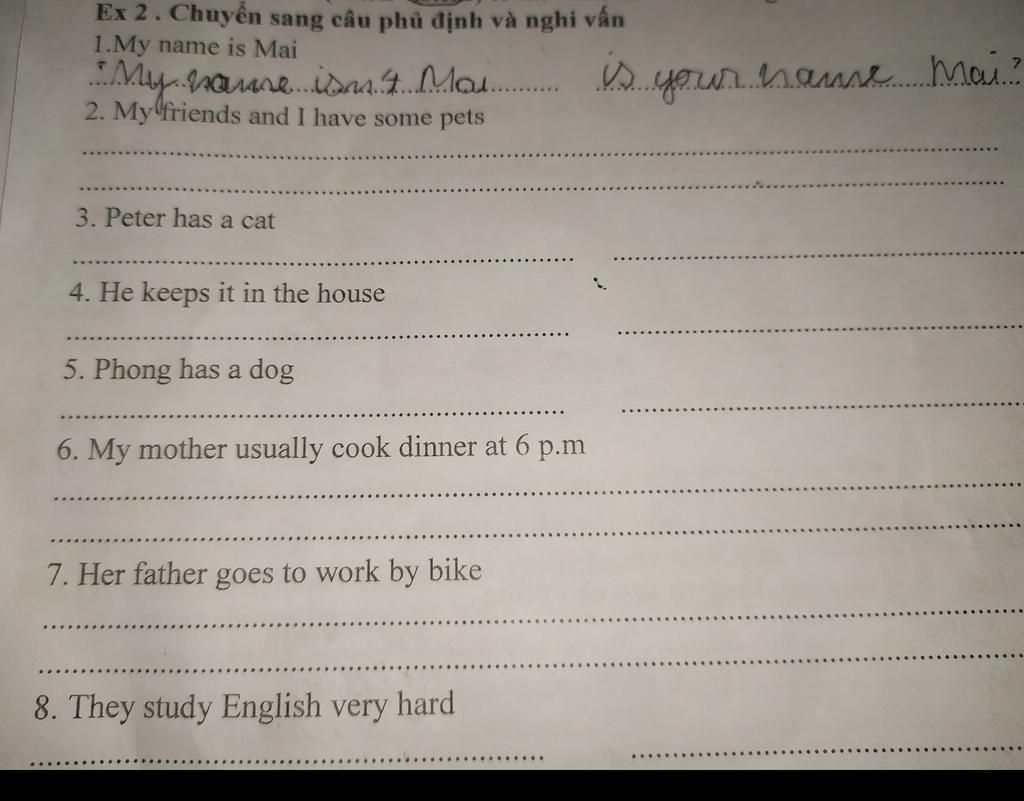 Ex 2 . Chuyển sang câu phủ định và nghi vấn
1.My name is Mai
My name isn't Mai is your name Mai?
2. My friends and I have some pets
3. Peter has a cat
4. He keeps it in the house
5. Phong has a dog
6. My mother usually cook dinner at 6 p.m
7. Her father goes to work by bike
8. They study English very hard